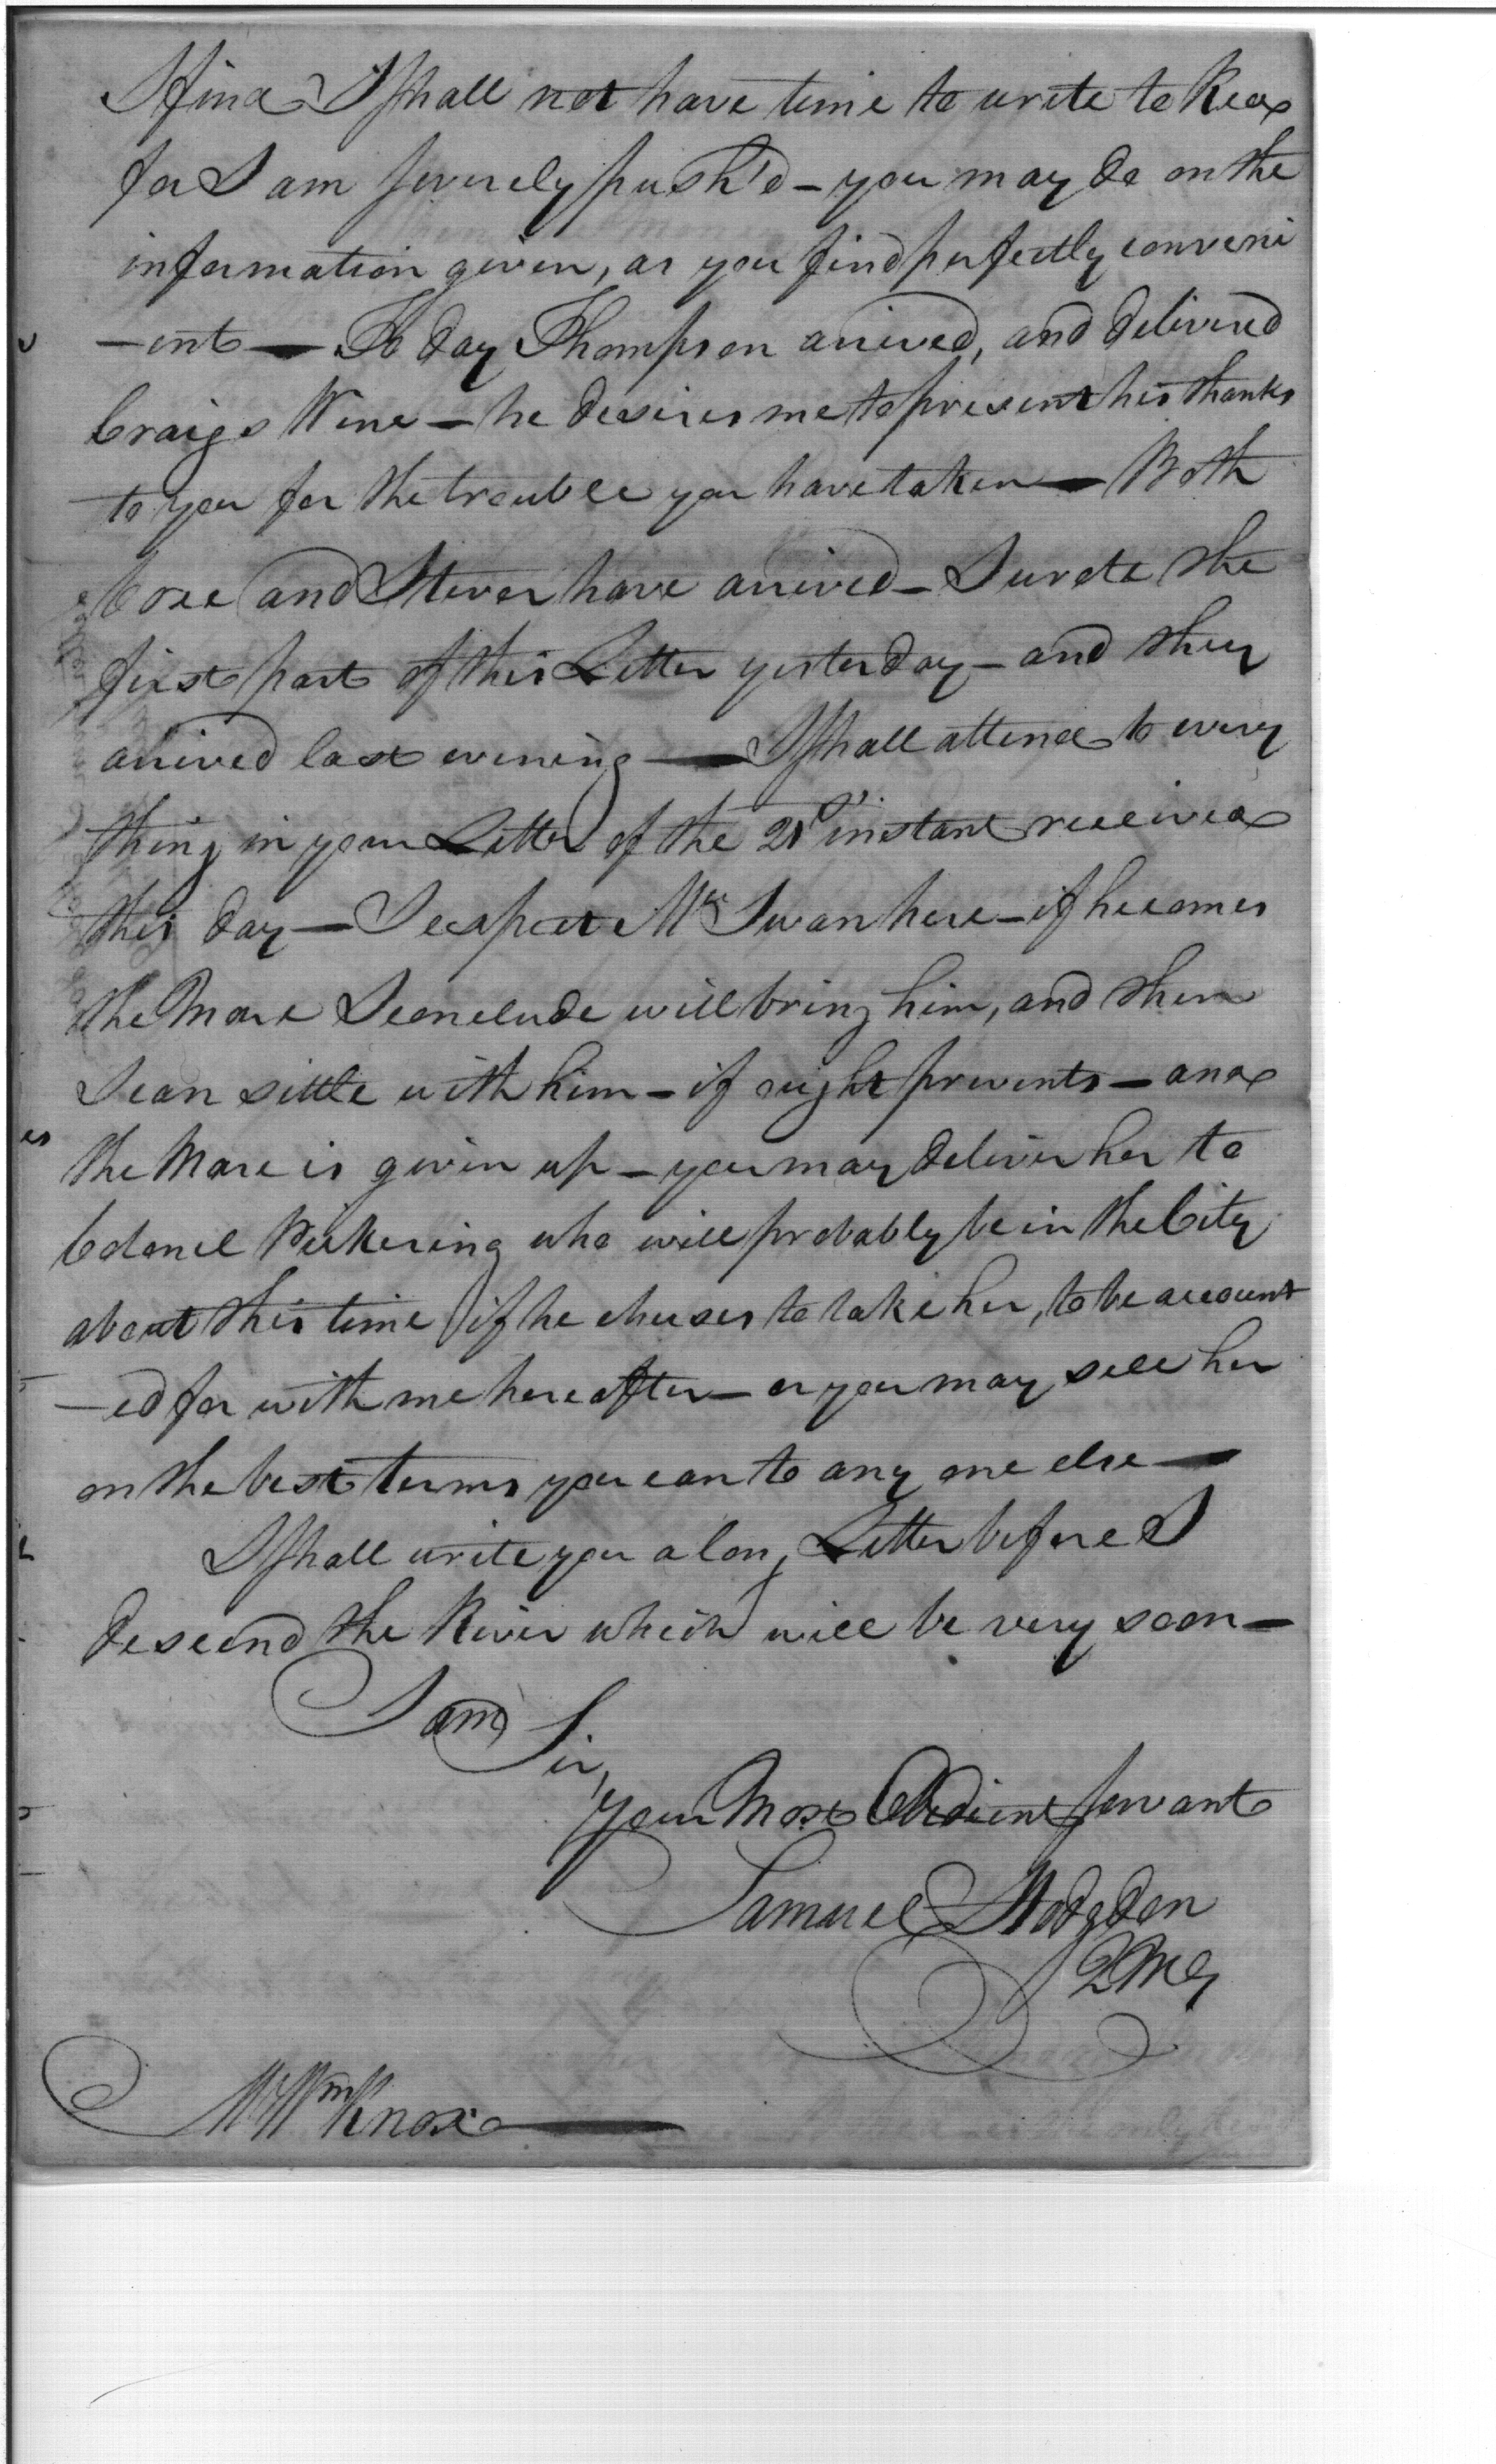 I find I shall not have time to write to Read
for I am severely push'd – you may do on the
information given, as you find perfectly conveni
–ent — To day Thompson arrived, and delivered
Craigs Wine – he desires me to present his thanks
to you for the trouble you have taken — Both
Coxe and Stever have arrived – I wrote the
first part of this Letter yesterday – and they
arrived last evening — I shall attend to every
thing in your Letter of the 21st instant received
this day — I expect Mr Swan here – if he comes
the Mare I conclude will bring him, and then
I can sittle with him – if ought prevents – and
the Mare is given up – you may deliver her to
Colonel Pickering who will probably be in the City
about this time if he chuses to take her, to be account
–ed for with me hereafter – or you may sell her
on the best terms you can to any one else —
I shall write you a long Letter before I
descend the River which will be very soon –
I am
Sir,
Your Most Obedient Servant
Samuel Hodgdon
QMG
Mr Wm Knox